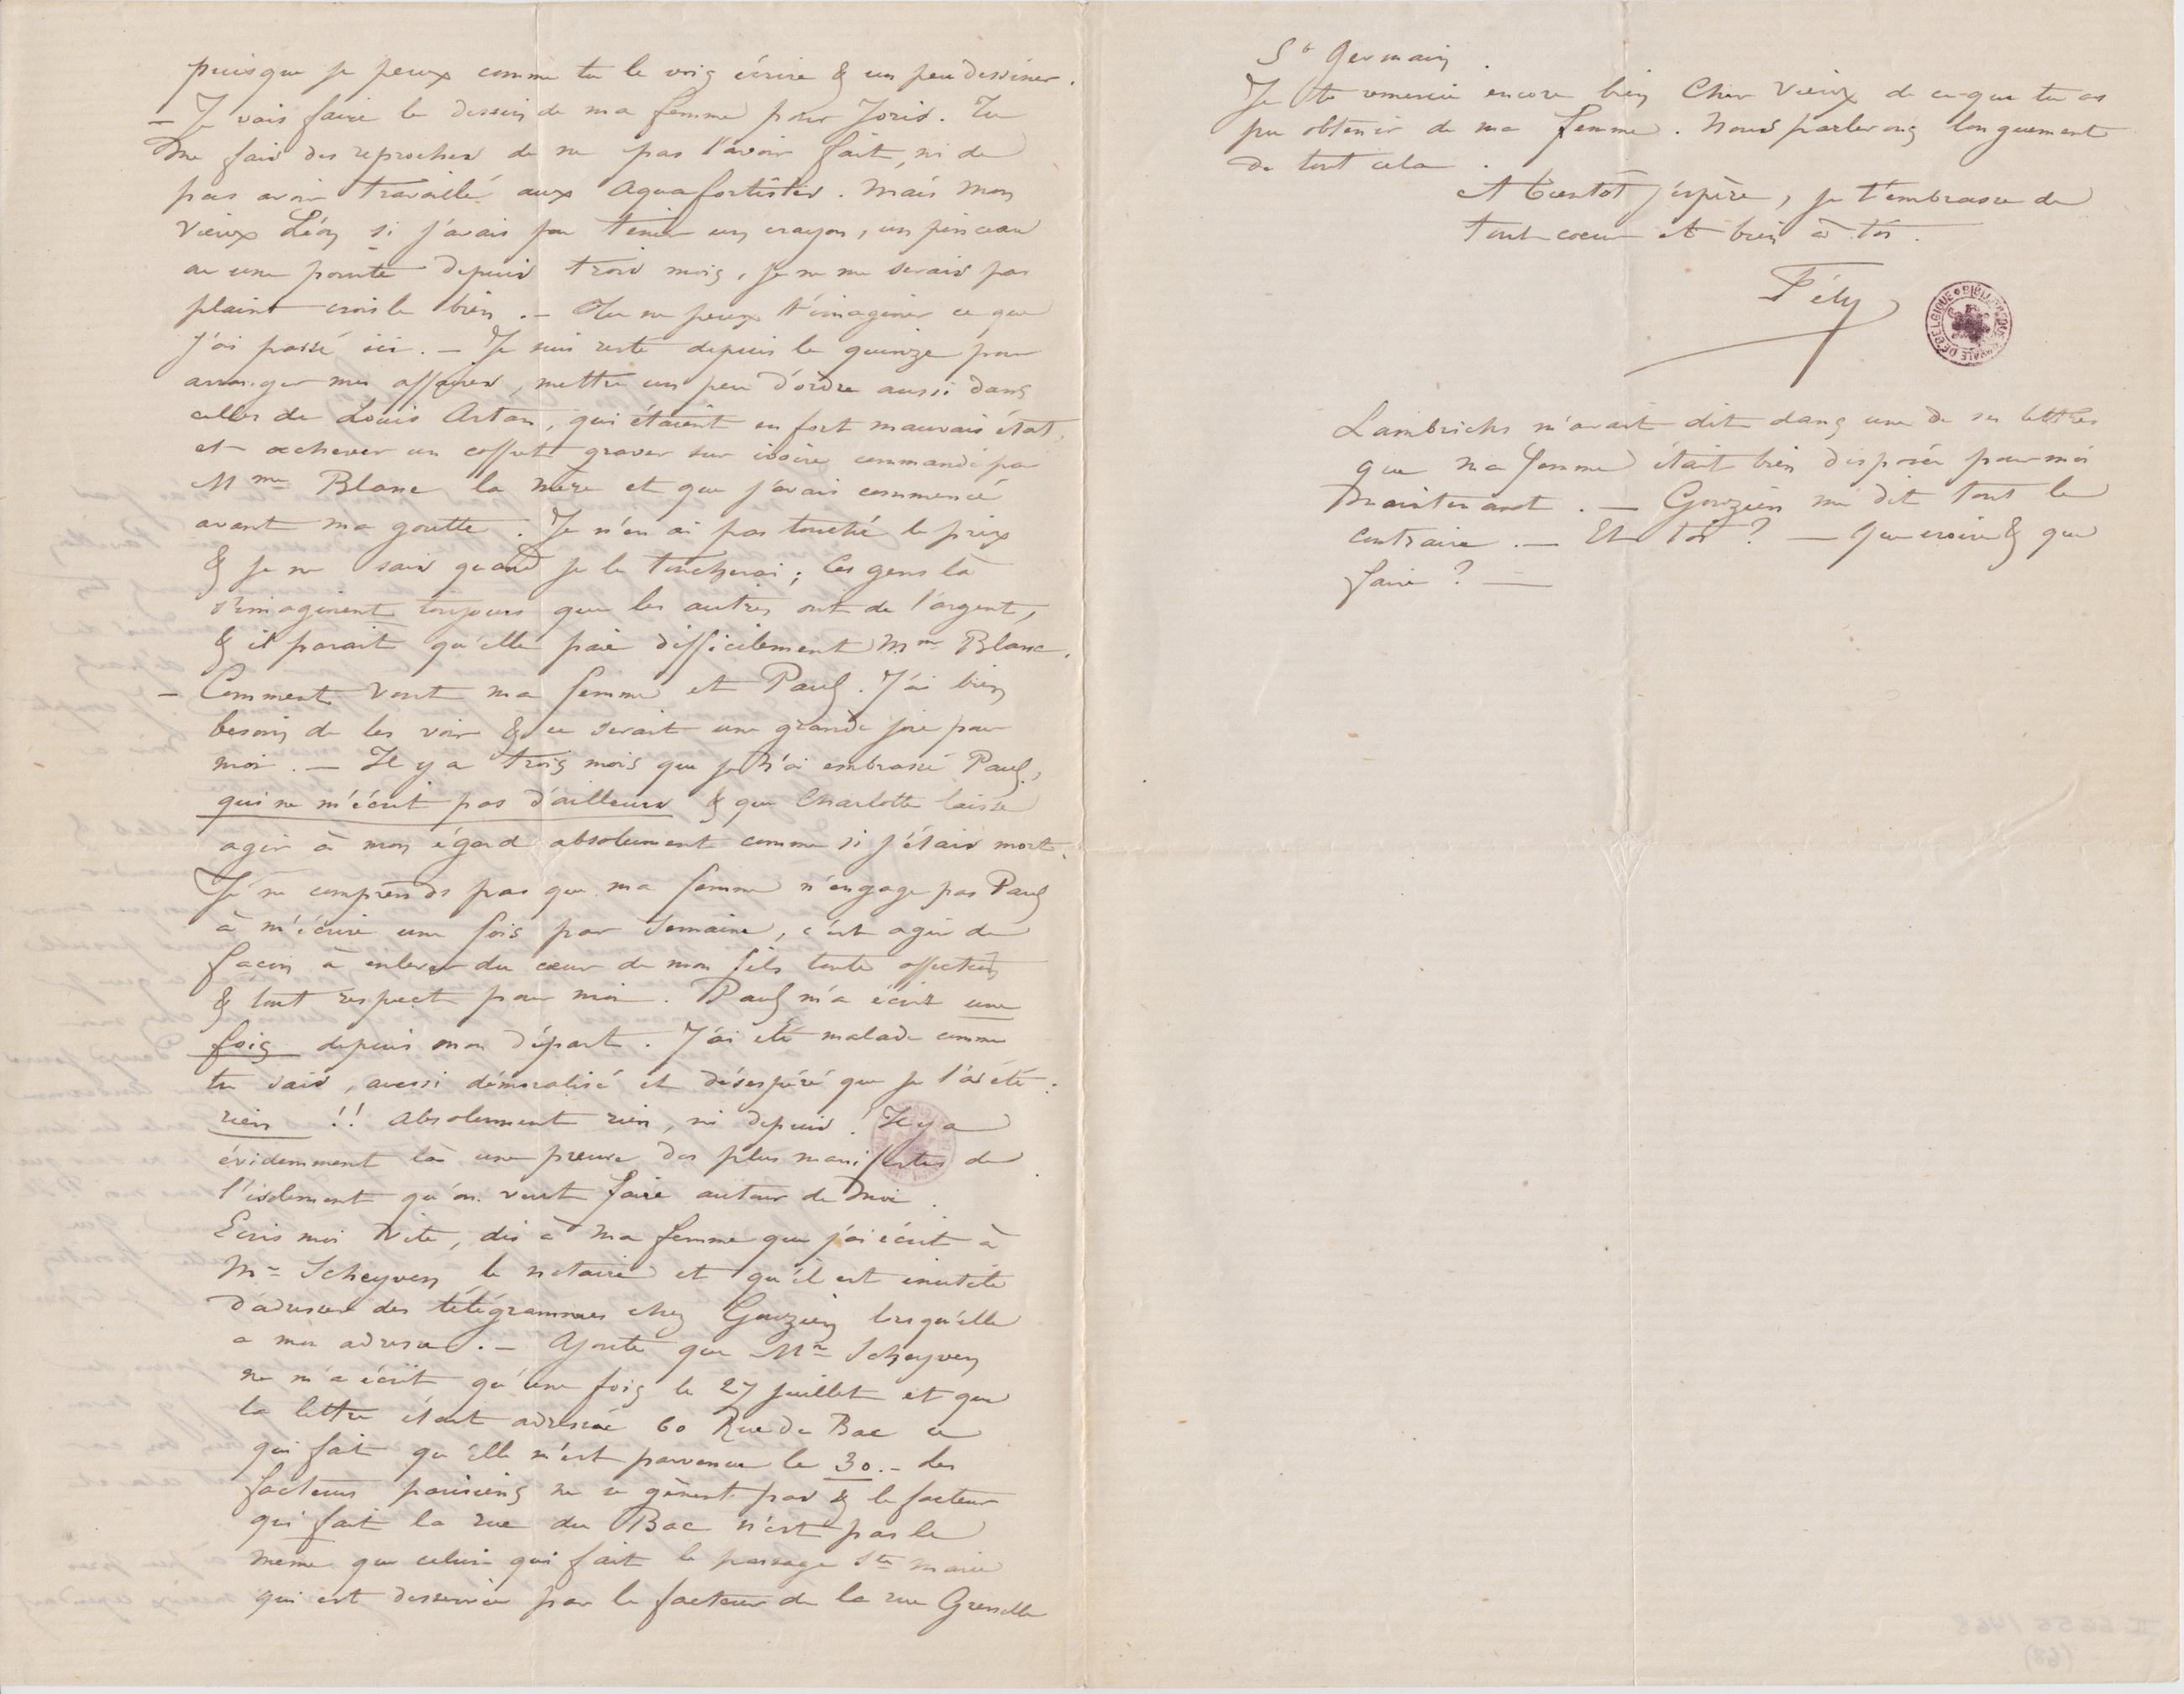 puisque je peux comme tu le vois écrire & un peu dessiner.
— Je vais faire le dessin de ma femme pour Joris. Tu
me fais des reproches de ne pas l'avoir fait, ni de
pas avoir travaillé aux Aquafortistes. Mais mon
vieux Léon si j'avais pu tenir un crayon, un pinceau
ou une pointe depuis trois mois, je ne me serais pas
plaint crois le bien. — Tu ne peux t'imaginer ce que
j'ai passé ici. — Je suis resté depuis le quinze pour
arranger mes affaires, mettre un peu d'ordre aussi dans
celles de Louis Artan, qui étaient en fort mauvais état,
et achever un coffret graver sur ivoire commandé par
Mme Blanc la mère et que j'avais commencé
avant ma goutte. Je n'en ai pas touché le prix
& je ne sais quand je le toucherai; ces gens là
s'imaginent toujours que les autres ont de l'argent,
& il parait qu'elle paie difficilement Mme Blanc.
— Comment vont ma femme et Paul. J'ai bien
besoin de les voir & ce serait une grande joie pour
moi. — Il y a trois mois que je n'ai embrassé Paul,
qui ne m'écrit pas d'ailleurs & que Charlotte laisse
agir à mon égard absolument comme si j'étais mort.
Je ne comprends pas que ma femme n'engage pas Paul
à m'écrire une fois par semaine, c'est agir de
façon à enlever du cœur de mon fils toute affection
& tout respect pour moi. Paul m'a écrit une
fois depuis mon départ. J'ai été malade comme
tu sais, aussi démoralisé et désespéré que je l'ai été:
rien !! absolument rien, ni depuis! Il y a
évidemment là une preuve des plus manifestes de
l'isolement qu'on veut faire autour de moi.
Ecris moi vite, dis à ma femme que j'ai écrit à
Mr Scheyven le notaire et qu'il est inutile
d'adresser des télégrammes chez Gouzien lorsqu'elle
a mon adresse. — Ajoute que Mr Scheyven
ne m'a écrit qu'une fois le 27 juillet et que
la lettre était adressée 60 Rue du Bac ce
qui fait qu'elle m'est parvenue le 30. — les
facteurs parisiens ne se gènent pas & le facteur
qui fait la rue du Bac n'est pas le
même que celui qui fait le passage Ste Marie
qui est desservie par le facteur de la rue Grenelle
St Germain.
Je te remercie encore bien Cher Vieux de ce que tu as
pu obtenir de ma femme. Nous parlerons longuement
de tout cela.
A bientôt j'espère, je t'embrasse de
tout cœur et bien à toi.
Fély
Lambrichs m'avait dit dans une de ses lettres
que ma femme était bien disposée pour moi
maintenant. — Gouzien me dit tout le
contraire. — Et toi? — Que croire & que
faire? —
II 6655/468
(68)